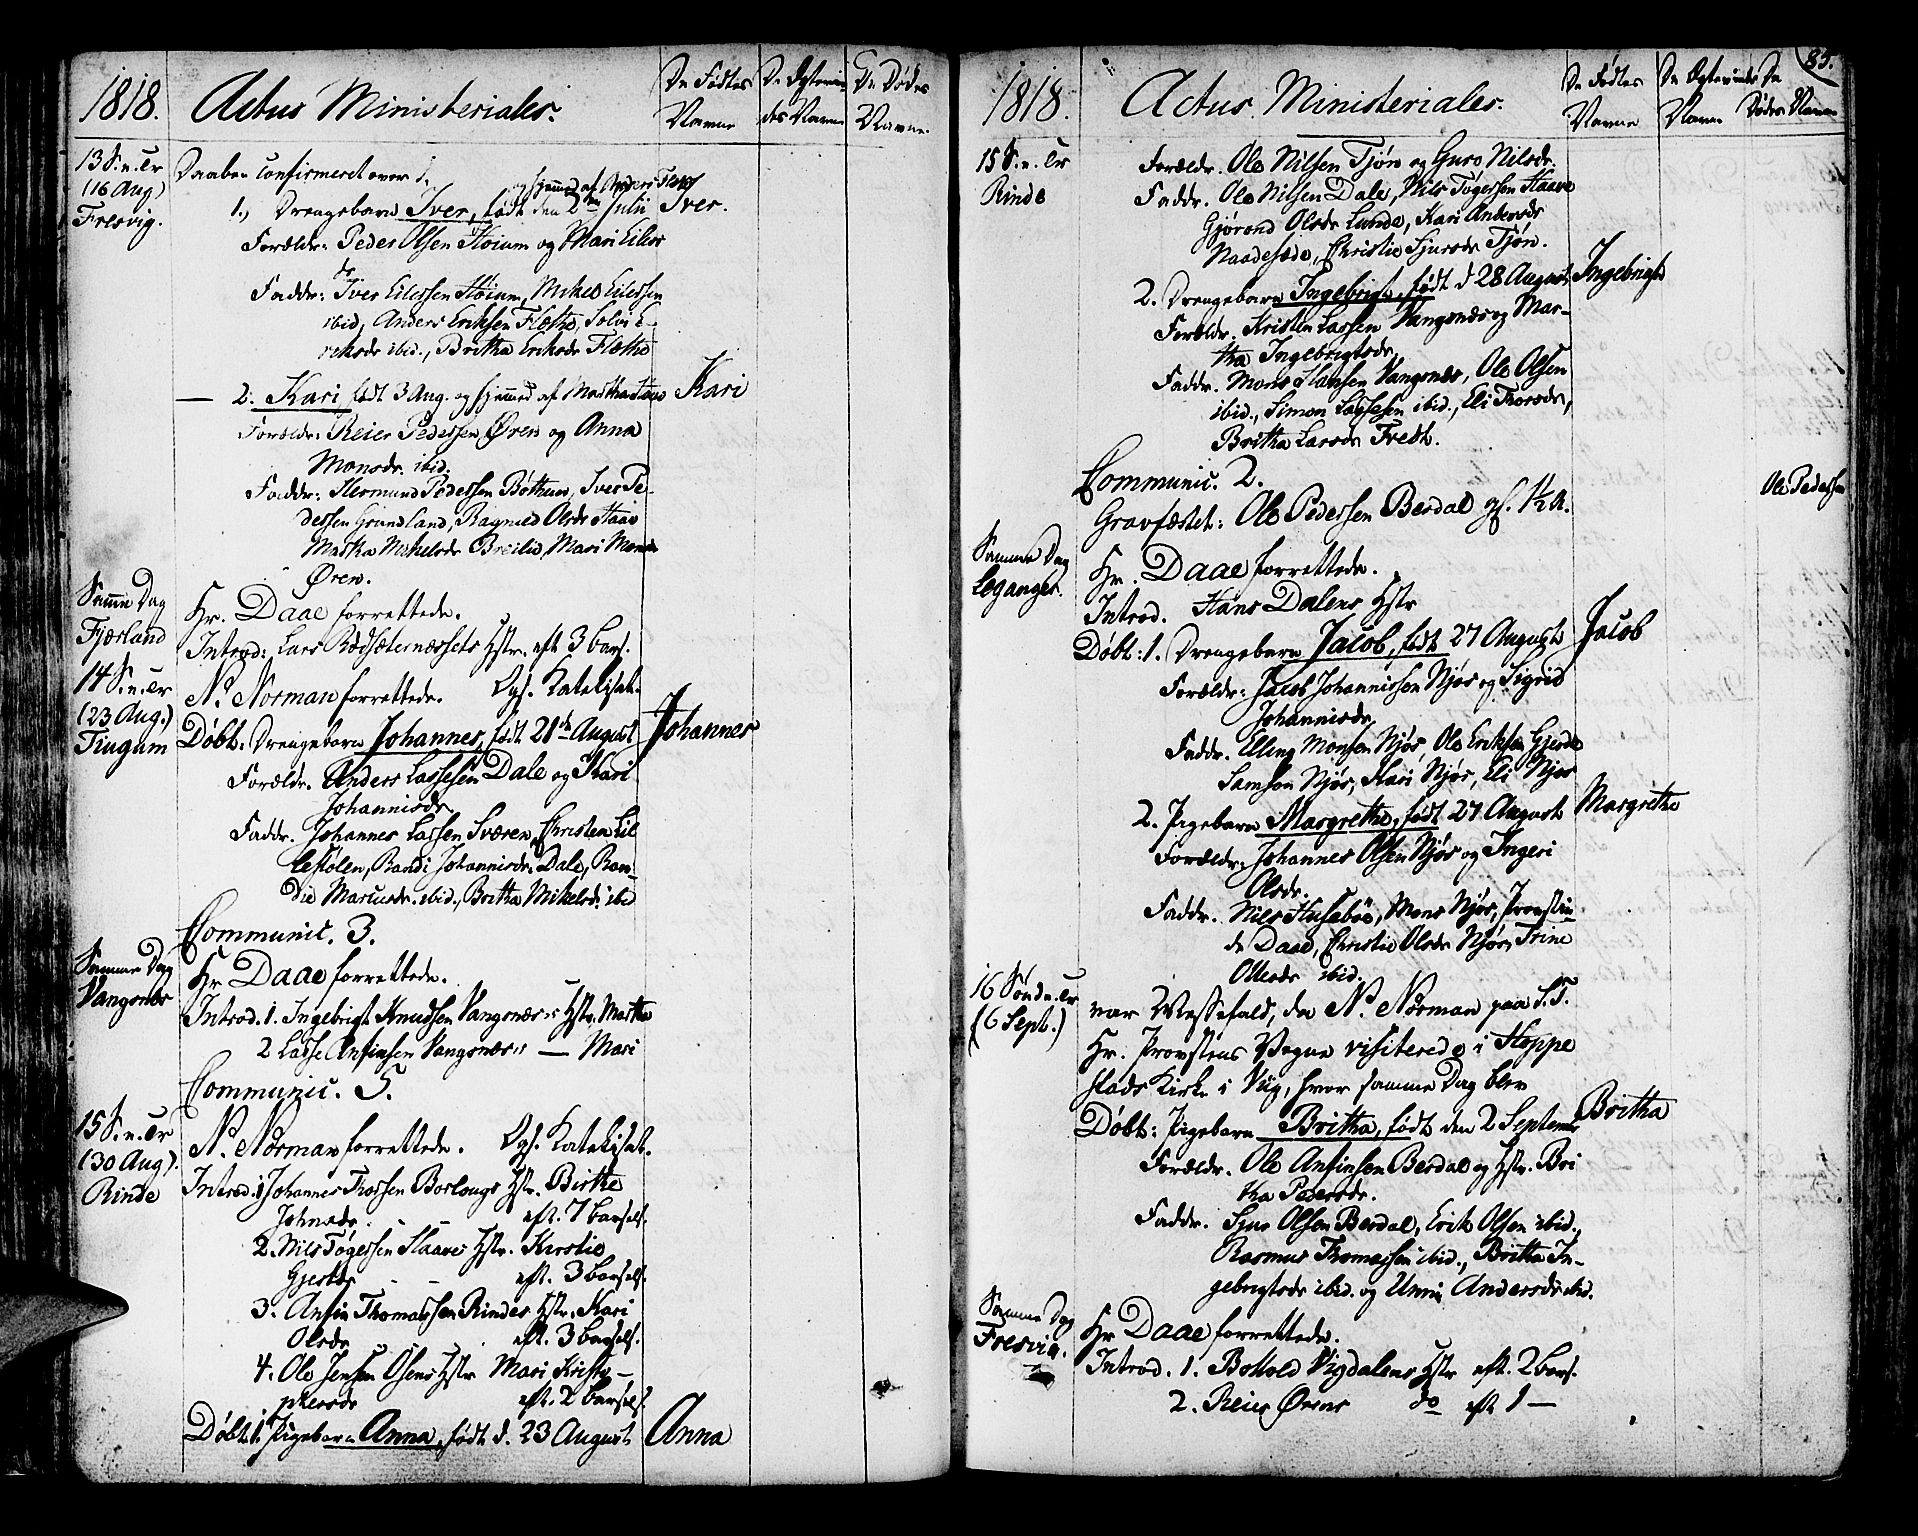 1818. Actus Ministeriales. De Fødtes Navne De Ægtevie- des Navne De Dødes Navne.
13 S. n. Tr
(16 Aug)
Fresvig.
Daaben confirmeret over
og hjemmed. af Anders Flette
1., Drengebarn Iver, født den 2den Julii Iver.
Forældr: Peder Olsen Høium og Mari Eilers
dr
Faddr: Iver Eilersen Høium, Mikel Eilersen
ibid, Anders Eriksen Flette, Solvi E-
riksdr ibid., Britha Eriksdr Flette
— 2. Kari, født 3 Aug. og hjemmed. af Martha Kari
Forældr: Reier Pedersen Øren og Anna
Monsdr. ibid.
Faddr: Hermund Pedersen Bøthun, Iver Pe-
dersen Grundland, Ragnild Olsdr
Martha Mikelsdr Breilie, Mari Monsdr
Øren.
Samme Dag
Fjærland
Hr. Daae forrettede.
Introd: Lars Rødsæternæssets Hstr. eft 3 bars.
14 S. n. Tr
(23 Aug.)
Tiugum
N. Norman forrettede. Ogs. Katekisat.
Døbt: Drengebarn Johannes, født 21de August Johannes
Forældr. Anders Lassesen Dale og Kari
Johannisdr.
Faddr. Johannes Lassen Sværen, Christen Lil
lestølen, Randi Johannisdr: Dale, Ran-
die Mariusdr. ibid., Britha Mikelsdr. ibid
Communic. 3.
Samme Dag
Vangsnæs
Hr Daae forrettede.
Introd. 1. Ingebrigt Knudsen Vangsnæs's Hstr. Martha
2 Lasse Anfinsen Vangsnæs's — Mari
Communic. 5.
15 S. n. Tr
(30 Aug).
Rinde
N. Norman forrettede. Ogs. Katekisat.
Introd. 1 Johannes Trossen Borlougs Hstr. Birthe
Johnsdr. eft. 7 barsels.
2. Nils Tøgersen Haaves Hstr. Kirstie
Gjertsdr eft. 3 barsels.
3. Anfin Thomassen Rindes Hstr. Kari
Olsdr eft. 3 barsels.
4. Ole Jensen Osens Hstr Mari Kristo-
phersdr eft. 2 barsels.
Døbt: 1. Pigebarn Anna, født d. 23 August Anna
1818. Actus Ministeriales. De Fødtes Navne De Ægteviedes Navne De Dødes Navne 85.
15 S. n. Tr
Rinde
Forældr. Ole Nilsen Tjøn og Guro Nilsdr.
Faddr. Ole Nilsen Dale, Nils Tøgersen Haave
Gjørond Olsdr Lunde, Kari Andersdr
Naadesæde, Christie Sjursdr Tjøn.
2. Drengebarn Ingebrigt, født d 28 August Ingebrigt
Forældr. Kristen Lassen Vangsnæs og Mar-
tha Ingebrigtsdr.
Faddr. Mons Hansen Vangsnæs, Ole Olsen
ibid., Simon Lassesen ibid., Eli Thorsdr,
Britha Larsdr Fredt.
Communic. 2.
Gravfæstet: Ole Pedersen Berdal gl. ½ A. Ole Pedersen
Samme Dag
Leganger.
Hr. Daae forrettede.
Introd. Hans Dalens Hstr
Døbt: 1. Drengebarn Jacob, født 27 August Jacob
Forældr: Jacob Johannissen Njøs og Sigrid
Johannisdr.
Faddr. Elling Monsen Njøs, Ole Eriksen Gjerde
Samson Njøs, Kari Njøs, Eli Njøs
2. Pigebarn Margrethe, født 27 August Margrethe
Forældr: Johannes Olsen Njøs og Ingeri
Olsdr.
Faddr. Nils Husebøe, Mons Njøs, Provstin-
de Daae, Christie Olsdr Njøs, Trine
Ollesdr ibid.
16 Søndn. Tr
(6 Sept.)
var Messefald, da N. Norman paa S. T.
Hr. Provstens Vegne visiterede i Hoppe
stads Kirke i Vig, hvor samme Dag blev
Døbt: Pigebarn Britha, født den 2 Septemb. Britha
Forældr. Ole Anfinsen Berdal og Hstr. Bri
tha Pedersdr.
Faddr. Sjur Olsen Berdal, Erik Olsen ibid.
Rasmus Thomassen ibid., Britha In-
gebrigtsdr ibid. og Unni Andersdr ibid.
Samme Dag
Fresvig.
Hr Daae forrettede.
Introd. 1. Bottold Vigdalens Hstr eft. 2 bars.
2. Reier Ørens do eft 1 —